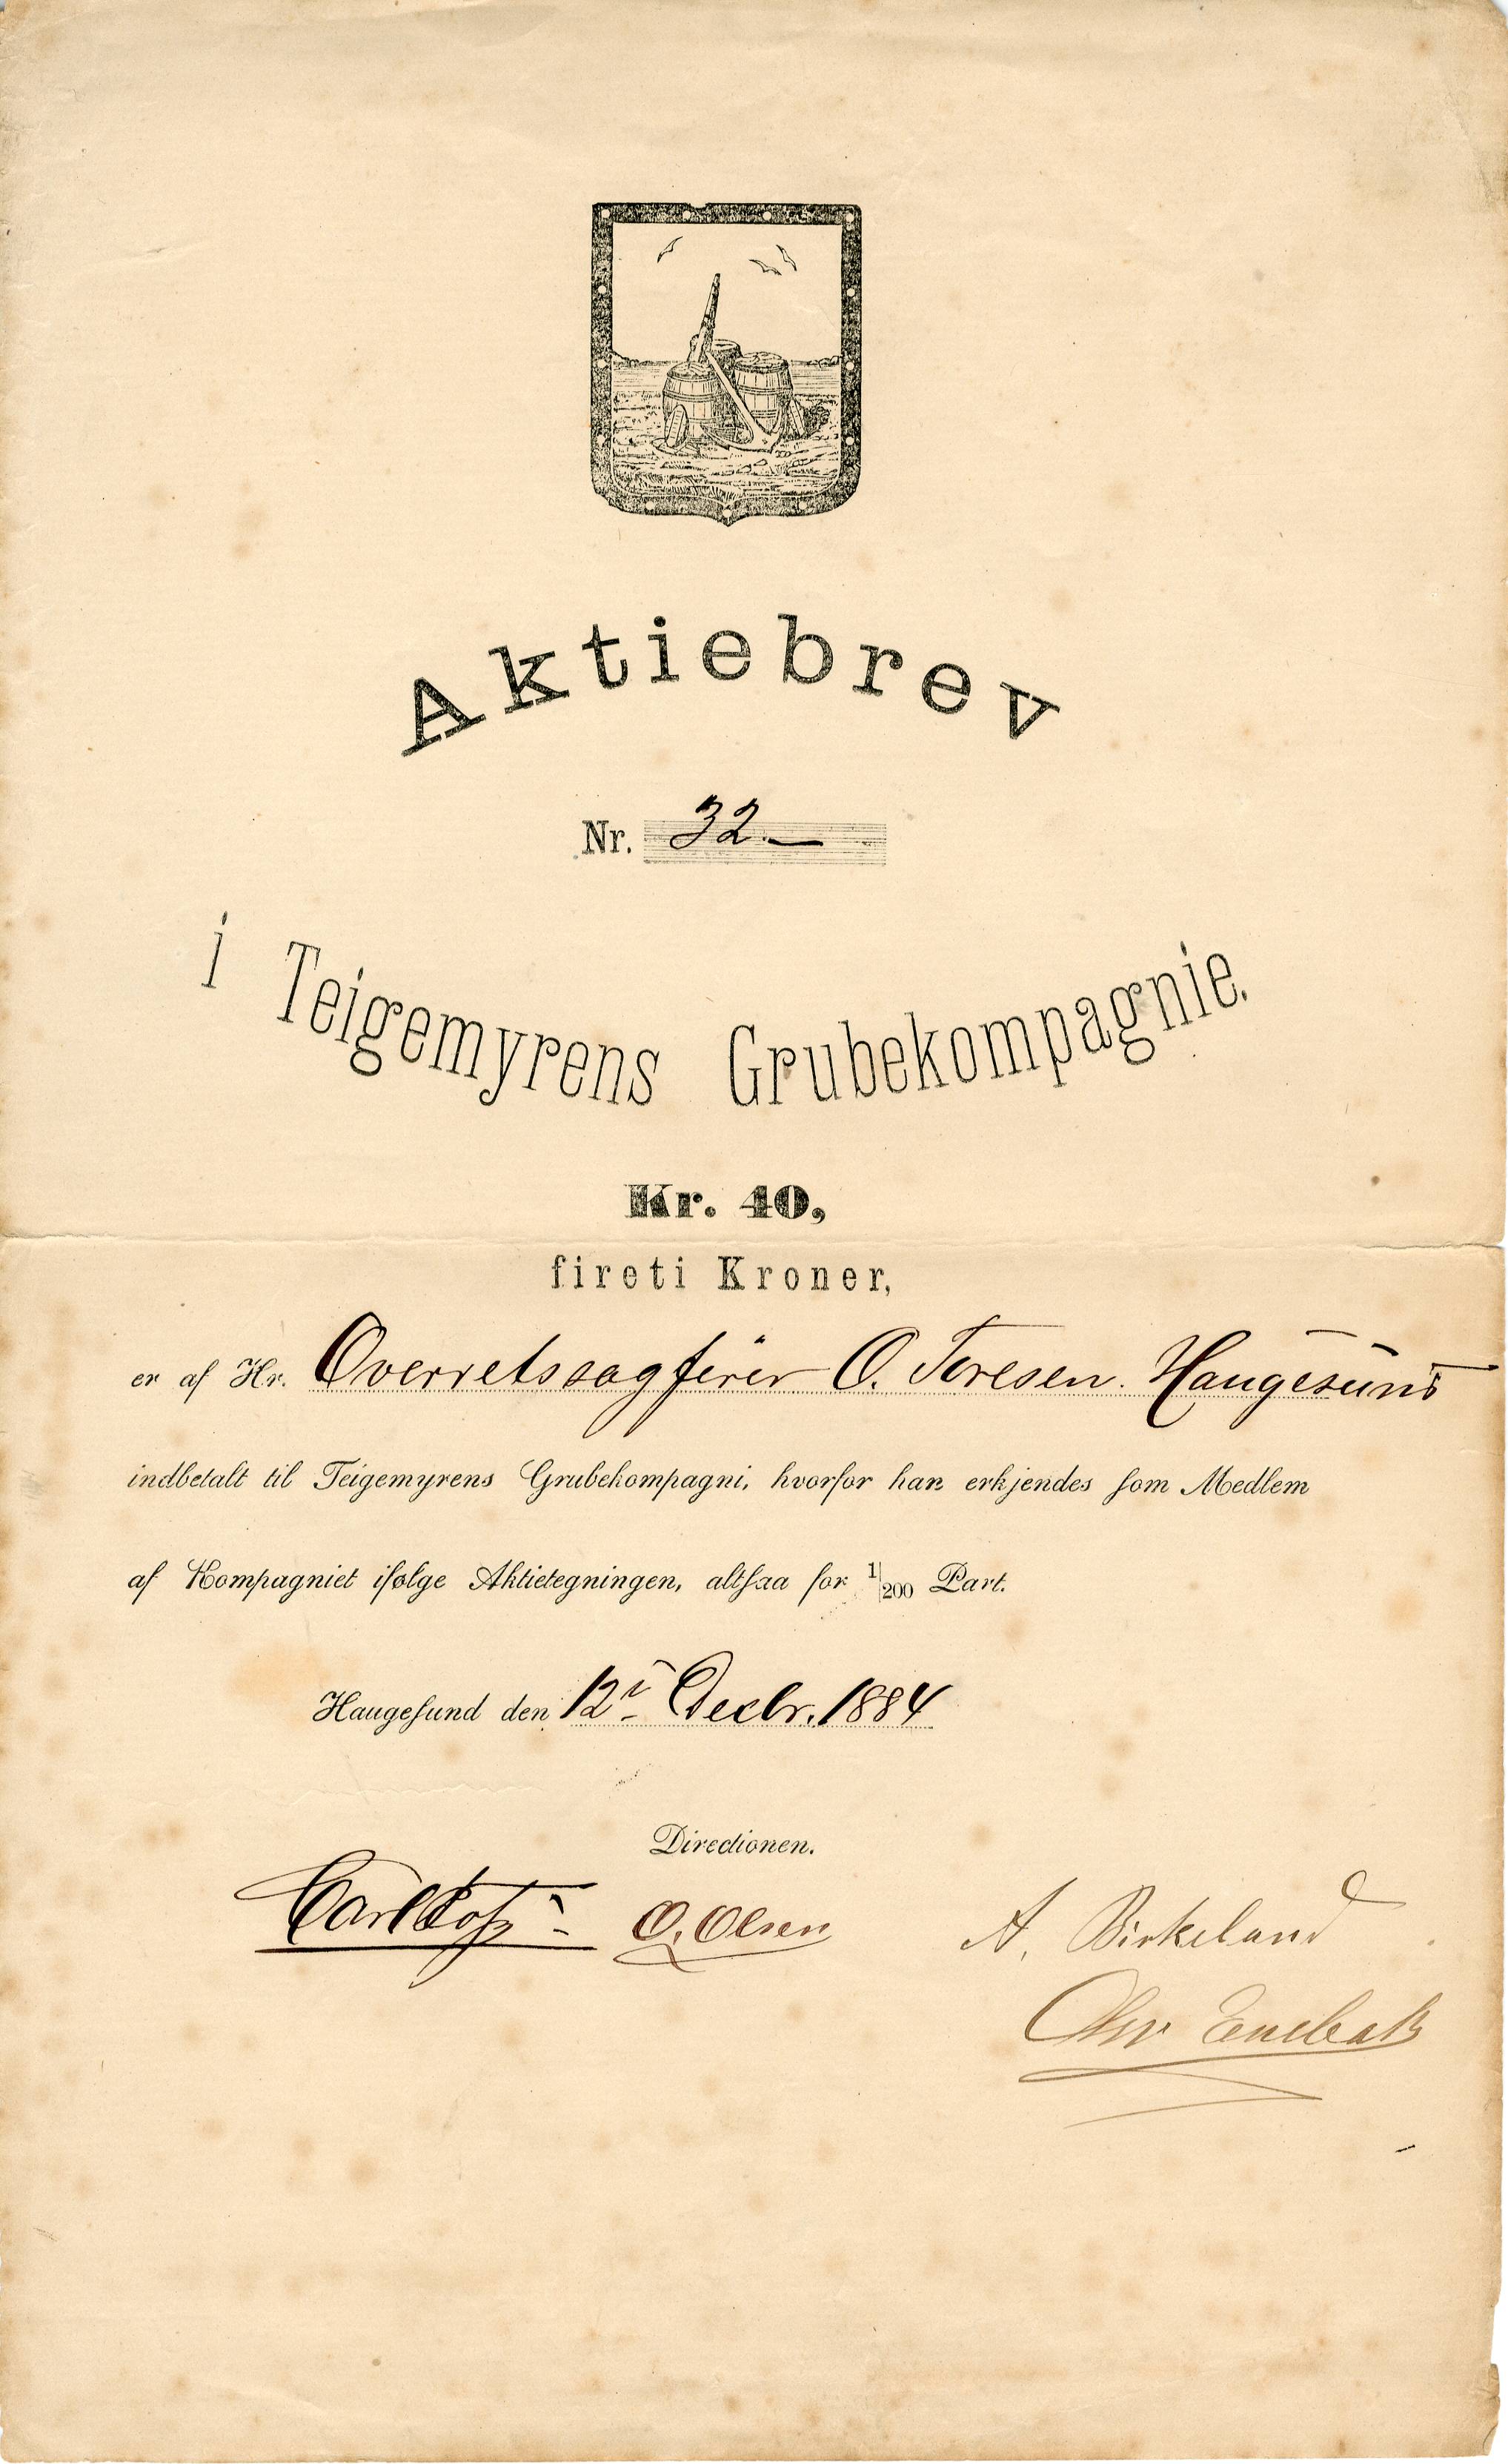 Aktiebrev
Nr. 32.—
i Teigemyrens Grubekompagnie.
Kr. 40,
fireti Kroner,
er af Hr. Overretssagfører O. Toresen. Haugesund
indbetalt til Teigemyrens Grubekompagni, hvorfor han erkjendes som Medlem
af Kompagniet ifølge Aktietegningen, altsaa for 1/200 Part.
Haugesund den 12te Decbr. 1884
Directionen.
Carl O. Olsen A. Birkeland
Chr Enebak